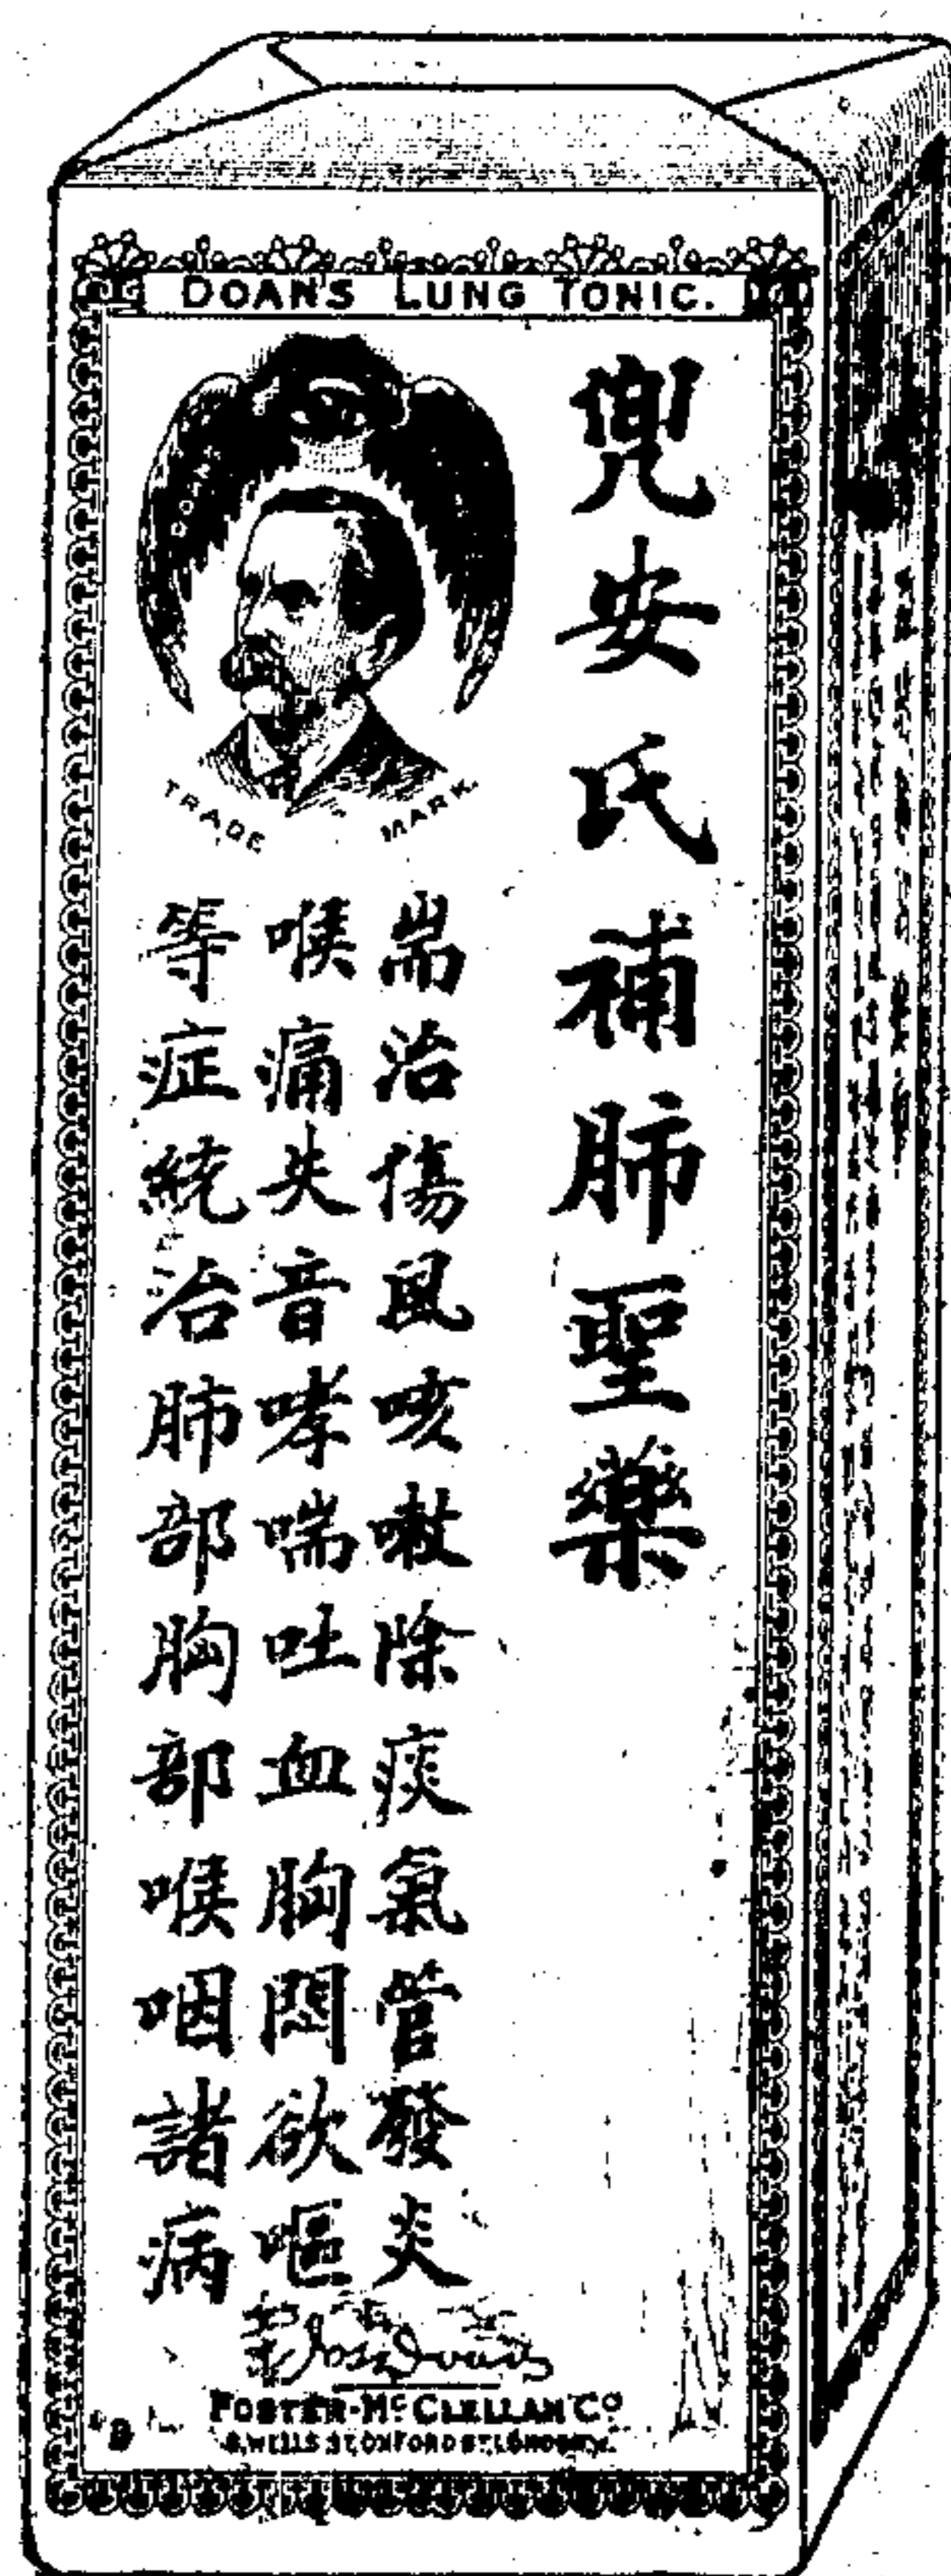 DOAN'S LUNG TONIC.
兜安氏補肺聖藥
TRADE MARK.
耑治傷風咳嗽除痰氣管發炎
喉痛失音哮喘吐血胸悶欲嘔
等症統治肺部胸部喉咽諸病
FOSTER-McCLELLAN Co
8, WELLS ST. OXFORD ST. LONDON, W.